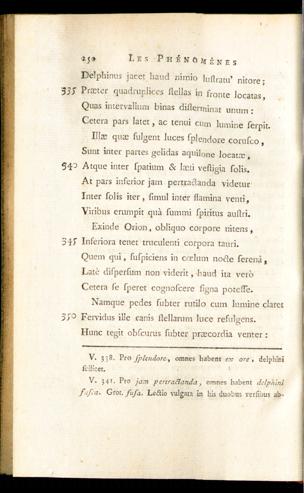 250 LES PHÉNOMÈNES
Delphinus jacet haud nimio lustratu' nitore;
335 Præter quadruplices stellas in fronte locatas,
Quas intervallum binas disterminat unum:
Cetera pars latet, ac tenui cum lumine serpit.
Illæ quæ fulgent luces splendore corusco,
Sunt inter partes gelidas aquilone locatæ,
540 Atque inter spatium & læti vestigia solis.
At pars inferior jam pertractanda videtur
Inter solis iter, simul inter flamina venti,
Viribus erumpit quà summi spiritus austri.
Exinde Orion, obliquo corpore nitens,
345 Inferiora tenet truculenti corpora tauri.
Quem qui, suspiciens in cœlum nocte serenâ,
Latè dispersum non viderit, haud ita verò
Cetera se speret cognoscere signa potesse.
Namque pedes subter rutilo cum lumine claret
350 Fervidus ille canis stellarum luce refulgens.
Hunc tegit obscurus subter præcordia venter:
V. 338. Pro splendore, omnes habent ex ore, delphini
scilicet.
V. 341. Pro jam pertractanda, omnes habent delphini
fusca. Grot. fusa. Lectio vulgata in his duobus versibus ab-